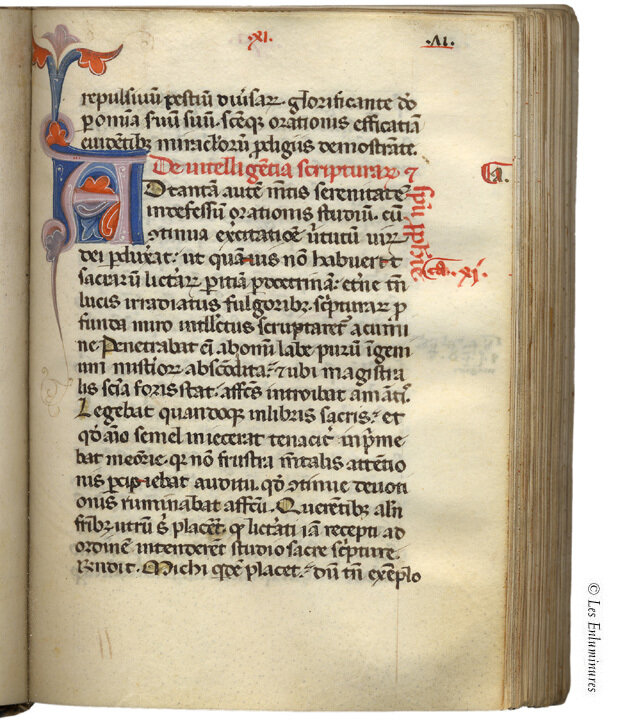 .XI. .XI.
repulsiuū pestiū diuisaꝝ. glorificante dō
ꝑ omnia ſuū ſuū. scēqꝫ orationis efficatiā
euidētibꝫ miraclorū ꝓdigiis demōstrāte.
De intelligētia scripturaꝝ ⁊
spū ꝓphēie
Ca. XI.
ADtantā autē mētis serenitatē
indefessū orationis studiū. cū
ɔtinua excitatiōe ūtutū uiꝝ
dei ꝑduxat. ut quāuis nō habuerit
sacraꝝ līaꝝ ꝑitiā ꝑ doctrinā. etn̄e tn̄
lucis irradiatus fulgoribꝫ. sc̄pturaꝝ ꝓ
funda miro intllectus scruptaret᷑ acumi
ne Penetrabat ei᷑ ab omī labe purū īgeni
um mistioꝝ absc̄ondita. ⁊ ubi magistra
lis scīa foris stat. affc̄us introibat amātis.
Legebat quandoqꝫ in libris sacris. et
qđ aīo semel iniecerat tenacit᷑ inp̄me
bat meōrie. qꝛ nō frustra mētalis attētio
nis ꝑcipiebat auditu. qđ ɔtinue deuoti
onis ruminabat affc̄u. Querētibꝫ aliqn̄
fr̄ibꝫ utrū s̄ placēt ꝙ līati iā recepti ad
ordinē intenderēt studio sacre sc̄pture.
Rn̄dit. Michi qdē placet. dū tn̄ exēplo
© Les Enluminures